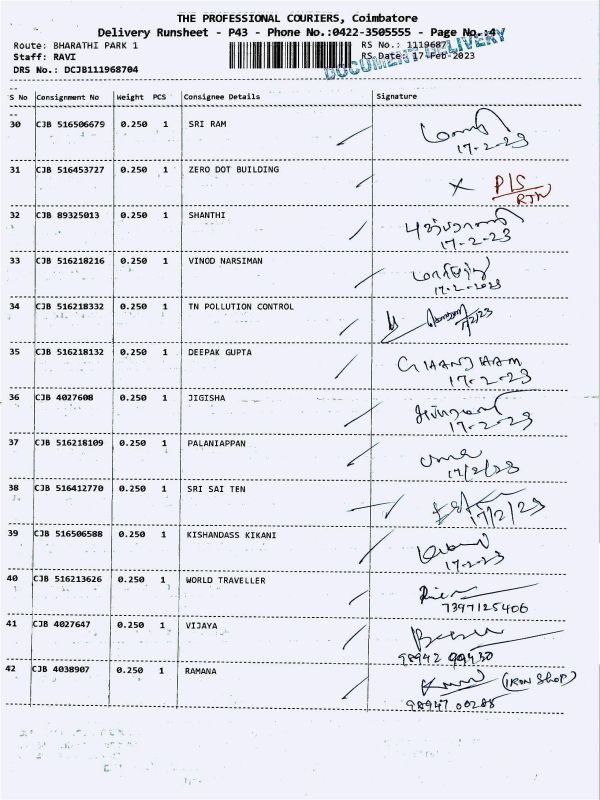 THE PROFESSIONAL COURIERS, Coimbatore
Delivery Runsheet - P43 - Phone No.:0422-3505555 - Page No.:4
Route: BHARATHI PARK 1 RS No.: 1119687
Staff: RAVI RS Date: 17-Feb-2023
DOCUMENT DELIVERY
DRS No.: DCJB111968704
S No Consignment No Weight PCS Consignee Details Signature
30 CJB 516506679 0.250 1 SRI RAM
17-2-23
31 CJB 516453727 0.250 1 ZERO DOT BUILDING X P/S
RTN
32 CJB 89325013 0.250 1 SHANTHI
17-2-23
33 CJB 516218216 0.250 1 VINOD NARSIMAN
17-2-2023
34 CJB 516218332 0.250 1 TN POLLUTION CONTROL
35 CJB 516218132 0.250 1 DEEPAK GUPTA
17-2-23
36 CJB 4027608 0.250 1 JIGISHA
17-2-23
37 CJB 516218109 0.250 1 PALANIAPPAN
17/2/23
38 CJB 516412770 0.250 1 SRI SAI TEN
17/2/23
39 CJB 516506588 0.250 1 KISHANDASS KIKANI
17-2-23
40 CJB 516213626 0.250 1 WORLD TRAVELLER
7397125406
41 CJB 4027647 0.250 1 VIJAYA
98942 99430
42 CJB 4038907 0.250 1 RAMANA (IRON SHOP)
98947 00288